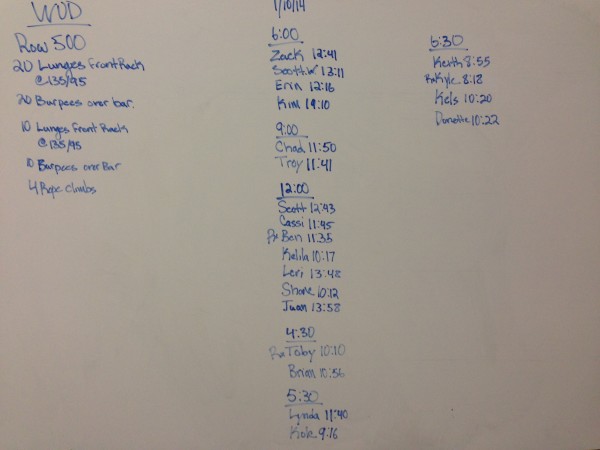 WOD
Row 500
20 Lunges Front Rack
@135/95
20 Burpees over bar.
10 Lunges Front Rack
@135/95
10 Burpees over Bar
4 Rope climbs
1/10/14
6:00
Zack 12:41
Scott.W 13:11
Erin 12:16
Kim 19:10
9:00
Chad 11:50
Troy 11:41
12:00
Scott 12:43
Cassi 11:45
Rx Ben 11:35
Kelila 10:17
Leri 13:48
Shane 10:12
Juan 13:58
4:30
Rx Toby 10:10
Brian 10:56
5:30
Lynda 11:40
Kole 9:16
6:30
Keith 8:55
Rx Kyle 8:18
Kels 10:20
Donette 10:22